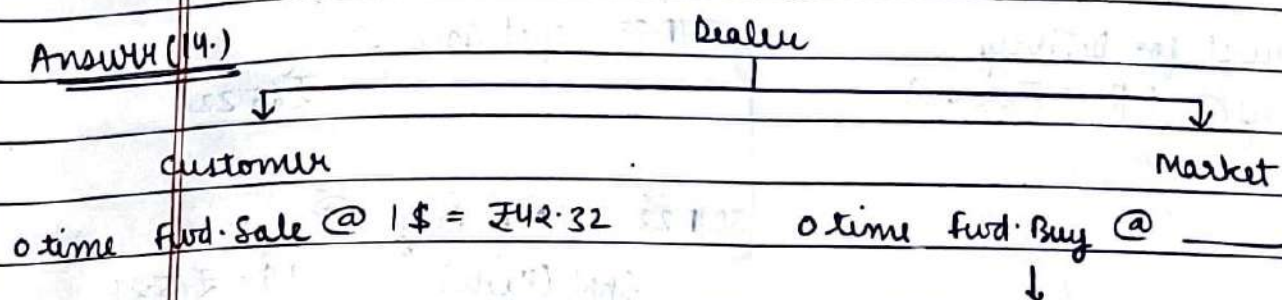 Answer (14.)
Dealer
Customer
Market
0 time Fwd. Sale @ 1 $ = ₹42.32
0 time Fwd. Buy @ ____